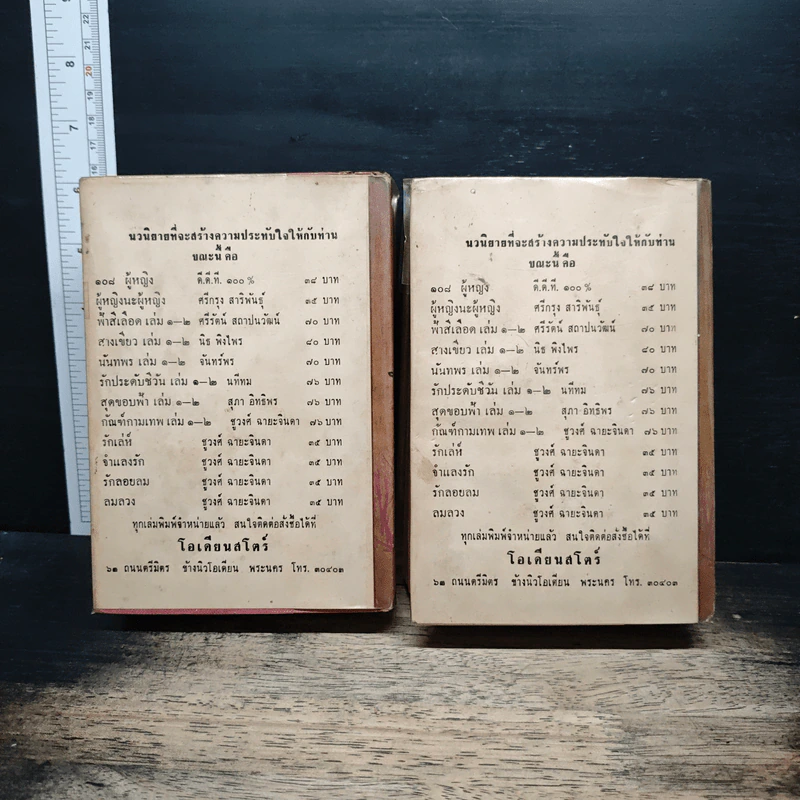 นวนิยายที่จะสร้างความประทับใจให้กับท่าน
ขณะนี้ คือ
๑๐๘ ผู้หญิง ดี.ดี.ที. ๑๐๐ % ๓๘ บาท
ผู้หญิงนะผู้หญิง ศรีกรุง สาริพันธุ์ ๓๕ บาท
ฟ้าสีเลือด เล่ม ๑—๒ ศรีรัตน์ สถาปนวัฒน์ ๗๐ บาท
สางเขียว เล่ม ๑—๒ นิธ พิงไพร ๘๐ บาท
นันทพร เล่ม ๑—๒ จันทร์พร ๗๐ บาท
รักประดับชีวัน เล่ม ๑—๒ นทีทม ๗๖ บาท
สุดขอบฟ้า เล่ม ๑—๒ สุภา อิทธิพร ๗๖ บาท
กัณฑ์กามเทพ เล่ม ๑—๒ ชูวงศ์ ฉายะจินดา ๗๖ บาท
รักเล่ห์ ชูวงศ์ ฉายะจินดา ๓๕ บาท
จำแลงรัก ชูวงศ์ ฉายะจินดา ๓๕ บาท
รักลอยลม ชูวงศ์ ฉายะจินดา ๓๕ บาท
ลมลวง ชูวงศ์ ฉายะจินดา ๓๕ บาท
ทุกเล่มพิมพ์จำหน่ายแล้ว สนใจติดต่อสั่งซื้อได้ที่
โอเดียนสโตร์
๖๑ ถนนตรีมิตร ข้างนิวโอเดียน พระนคร โทร. ๓๐๔๐๓
นวนิยายที่จะสร้างความประทับใจให้กับท่าน
ขณะนี้ คือ
๑๐๘ ผู้หญิง ดี.ดี.ที. ๑๐๐ % ๓๘ บาท
ผู้หญิงนะผู้หญิง ศรีกรุง สาริพันธุ์ ๓๕ บาท
ฟ้าสีเลือด เล่ม ๑—๒ ศรีรัตน์ สถาปนวัฒน์ ๗๐ บาท
สางเขียว เล่ม ๑—๒ นิธ พิงไพร ๘๐ บาท
นันทพร เล่ม ๑—๒ จันทร์พร ๗๐ บาท
รักประดับชีวัน เล่ม ๑—๒ นทีทม ๗๖ บาท
สุดขอบฟ้า เล่ม ๑—๒ สุภา อิทธิพร ๗๖ บาท
กัณฑ์กามเทพ เล่ม ๑—๒ ชูวงศ์ ฉายะจินดา ๗๖ บาท
รักเล่ห์ ชูวงศ์ ฉายะจินดา ๓๕ บาท
จำแลงรัก ชูวงศ์ ฉายะจินดา ๓๕ บาท
รักลอยลม ชูวงศ์ ฉายะจินดา ๓๕ บาท
ลมลวง ชูวงศ์ ฉายะจินดา ๓๕ บาท
ทุกเล่มพิมพ์จำหน่ายแล้ว สนใจติดต่อสั่งซื้อได้ที่
โอเดียนสโตร์
๖๑ ถนนตรีมิตร ข้างนิวโอเดียน พระนคร โทร. ๓๐๔๐๓